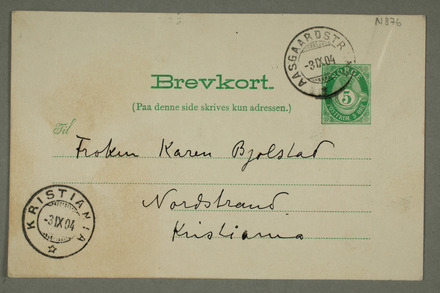 N876
AASGAARDSTR
-3 IX 04
NORGE
5
Brevkort.
(Paa denne side skrives kun adressen.)
Til
Frøken Karen Bjølstad
Nordstrand
Kristiania
KRISTIANIA
-3 IX 04